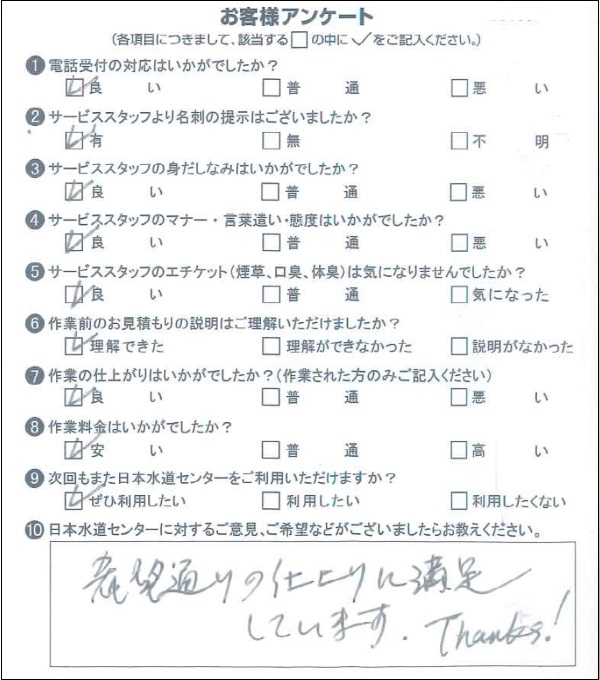 お客様アンケート
(各項目につきまして、該当する□の中に✓をご記入ください。)
❶電話受付の対応はいかがでしたか?
☑良い □普通 □悪い
❷サービススタッフより名刺の提示はございましたか?
☑有 □無 □不明
❸サービススタッフの身だしなみはいかがでしたか?
☑良い □普通 □悪い
❹サービススタッフのマナー・言葉遣い・態度はいかがでしたか?
☑良い □普通 □悪い
❺サービススタッフのエチケット(煙草、口臭、体臭)は気になりませんでしたか?
☑良い □普通 □気になった
❻作業前のお見積もりの説明はご理解いただけましたか?
☑理解できた □理解ができなかった □説明がなかった
❼作業の仕上がりはいかがでしたか?(作業された方のみご記入ください)
☑良い □普通 □悪い
❽作業料金はいかがでしたか?
☑安い □普通 □高い
❾次回もまた日本水道センターをご利用いただけますか?
☑ぜひ利用したい □利用したい □利用したくない
❿日本水道センターに対するご意見、ご希望などがございましたらお教えください。
希望通りの仕上りに満足
しています. Thanks!